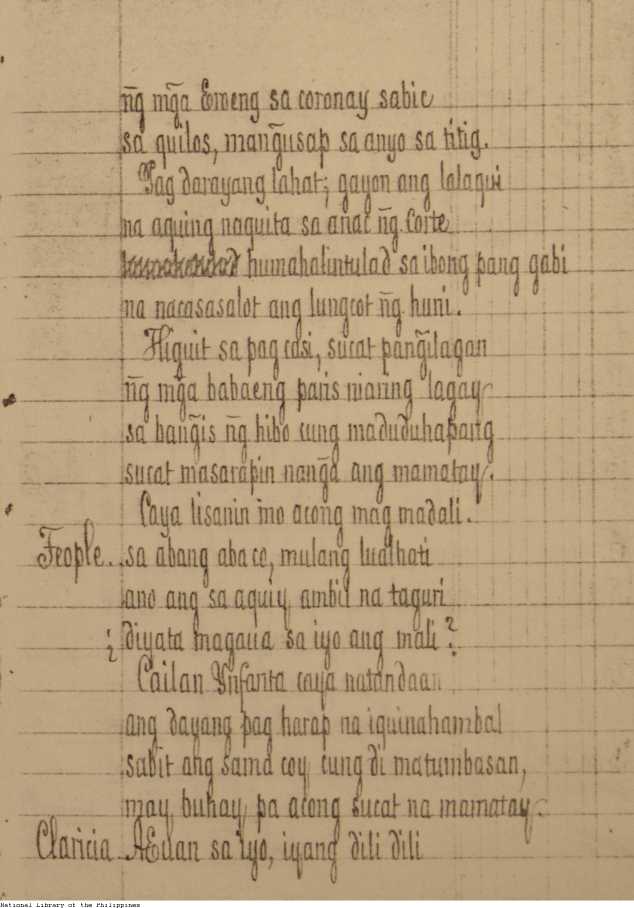 n͠g mg̃a Eweng sa coronay sabic
sa quilos, mang̃usap sa anyo sa titig.
Pag darayang lahat; gayon ang lalaqui
na aquing naquita sa anac n͠g Corte
humahalintulad sa ibong pang gabi
na nacasasalot ang lungcot n͠g huni.
Higuit sa pag casi, sucat pang̃ilagan
n͠g mg̃a babaeng paris niaring lagay
sa bang̃is n͠g hibo cung maduduhapang
sucat masarapin nang̃a ang mamatay.
Caya lisanin mo acong mag madali.
Feople.. sa abang aba co, mulang lualhati
ano ang sa aquiy, ambil na taguri
¿ diyata magaua sa iyo ang mali?
Cailan Ynfanta caya natandaan
ang dayang pag harap na iquinahambal
sabit ang sama coy, cung di matumbasan,
may, buhay, pa acong sucat na mamatay.
Claricia .. sa iyo, iyang dili dili
National Library of the Philippines